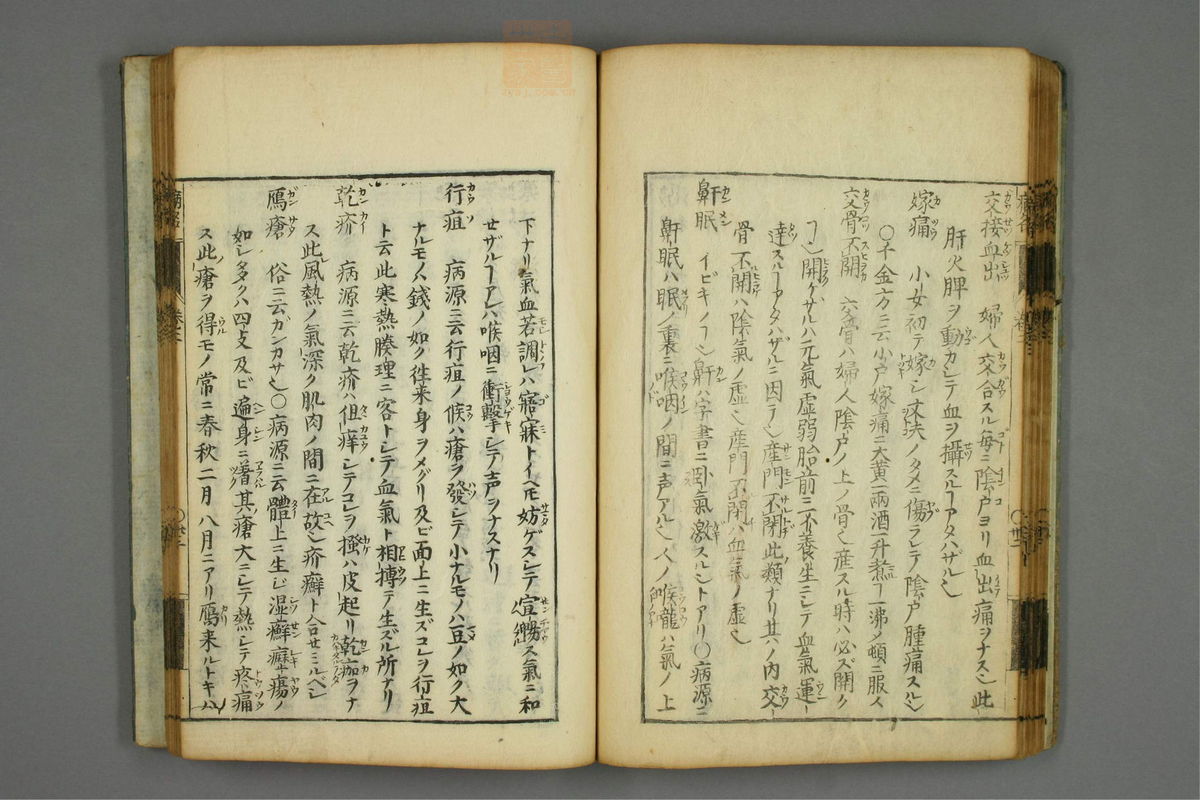 交接血出 婦人交合スル毎ニ陰戸ヨリ血出痛ヲナス乄此
肝火脾ヲ動カシテ血ヲ攝スルヿアタハザル乄
嫁痛 小女初テ嫁シ丈夫ノタメニ傷ラレテ陰戸腫痛スル乄
〇千金方ニ云小戸嫁痛ニ大黄二兩酒一升煮一沸ノ頓ニ服ス
交骨不開 交骨ハ婦人陰戸ノ上ノ骨乄産スル時ハ必ズ開ク
ヿ乄開ケザルハ元氣虚弱胎前ニ不養生ニシテ血氣運
達スルヿアタハザルニ因テ乄産門不閉此類ナリ其ハノ内交
骨不開ハ陰氣ノ虚乄産門不閉ハ血氣ノ虚乄
鼾眠 イビキノヿ乄鼾ハ字書ニ卧氣激スル乄トアリ〇病源ニ
鼾眠ハ眠ノ裏ニ喉咽ノ間ニ声アル乄人ノ喉嚨ハ氣ノ上
下ナリ氣血若調レハ寤寐トイヘモ妨ゲスシテ宣暢ス氣ニ和
セザルヿアレハ喉咽ニ衝擊シテ声ヲナスナリ
行疽 病源ニ云行疽ノ候ハ瘡ヲ發シテ小ナルモノハ豆ノ如ク大
ナルモノハ錢ノ如ク徃来身ヲメグリ及ビ面上ニ生ズコレヲ行疽
ト云此寒熱腠理ニ客トシテ血氣ト相摶テ生ズル所ナリ
乾疥 病源ニ云乾疥ハ但痒シテコレヲ搔ハ皮起リ乾痂ヲナ
ス此風熱ノ氣深ク肌肉ノ間ニ在故乄疥癬ト合セミルベシ
鴈瘡 俗ニ云ガンカサ乄〇病源ニ云體上ニ生ジ湿癬癧瘍ノ
如シ多クハ四支及ビ遍身ニ著其瘡大ニシテ熱シテ疼痛
ス此瘡ヲ得モノ常ニ春秋二月八月ニアリ鴈来ルトキハ